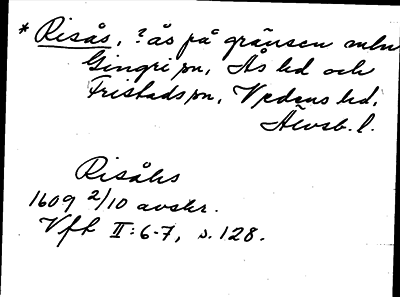 * Risås, ? ås på gränsen mln
Gingri sn, Ås hd och
Fristads sn, Vedens hd,
Älvsb. l.
Risåhs
1609 2/10 avskr.
Vft II:6-7, s. 128.